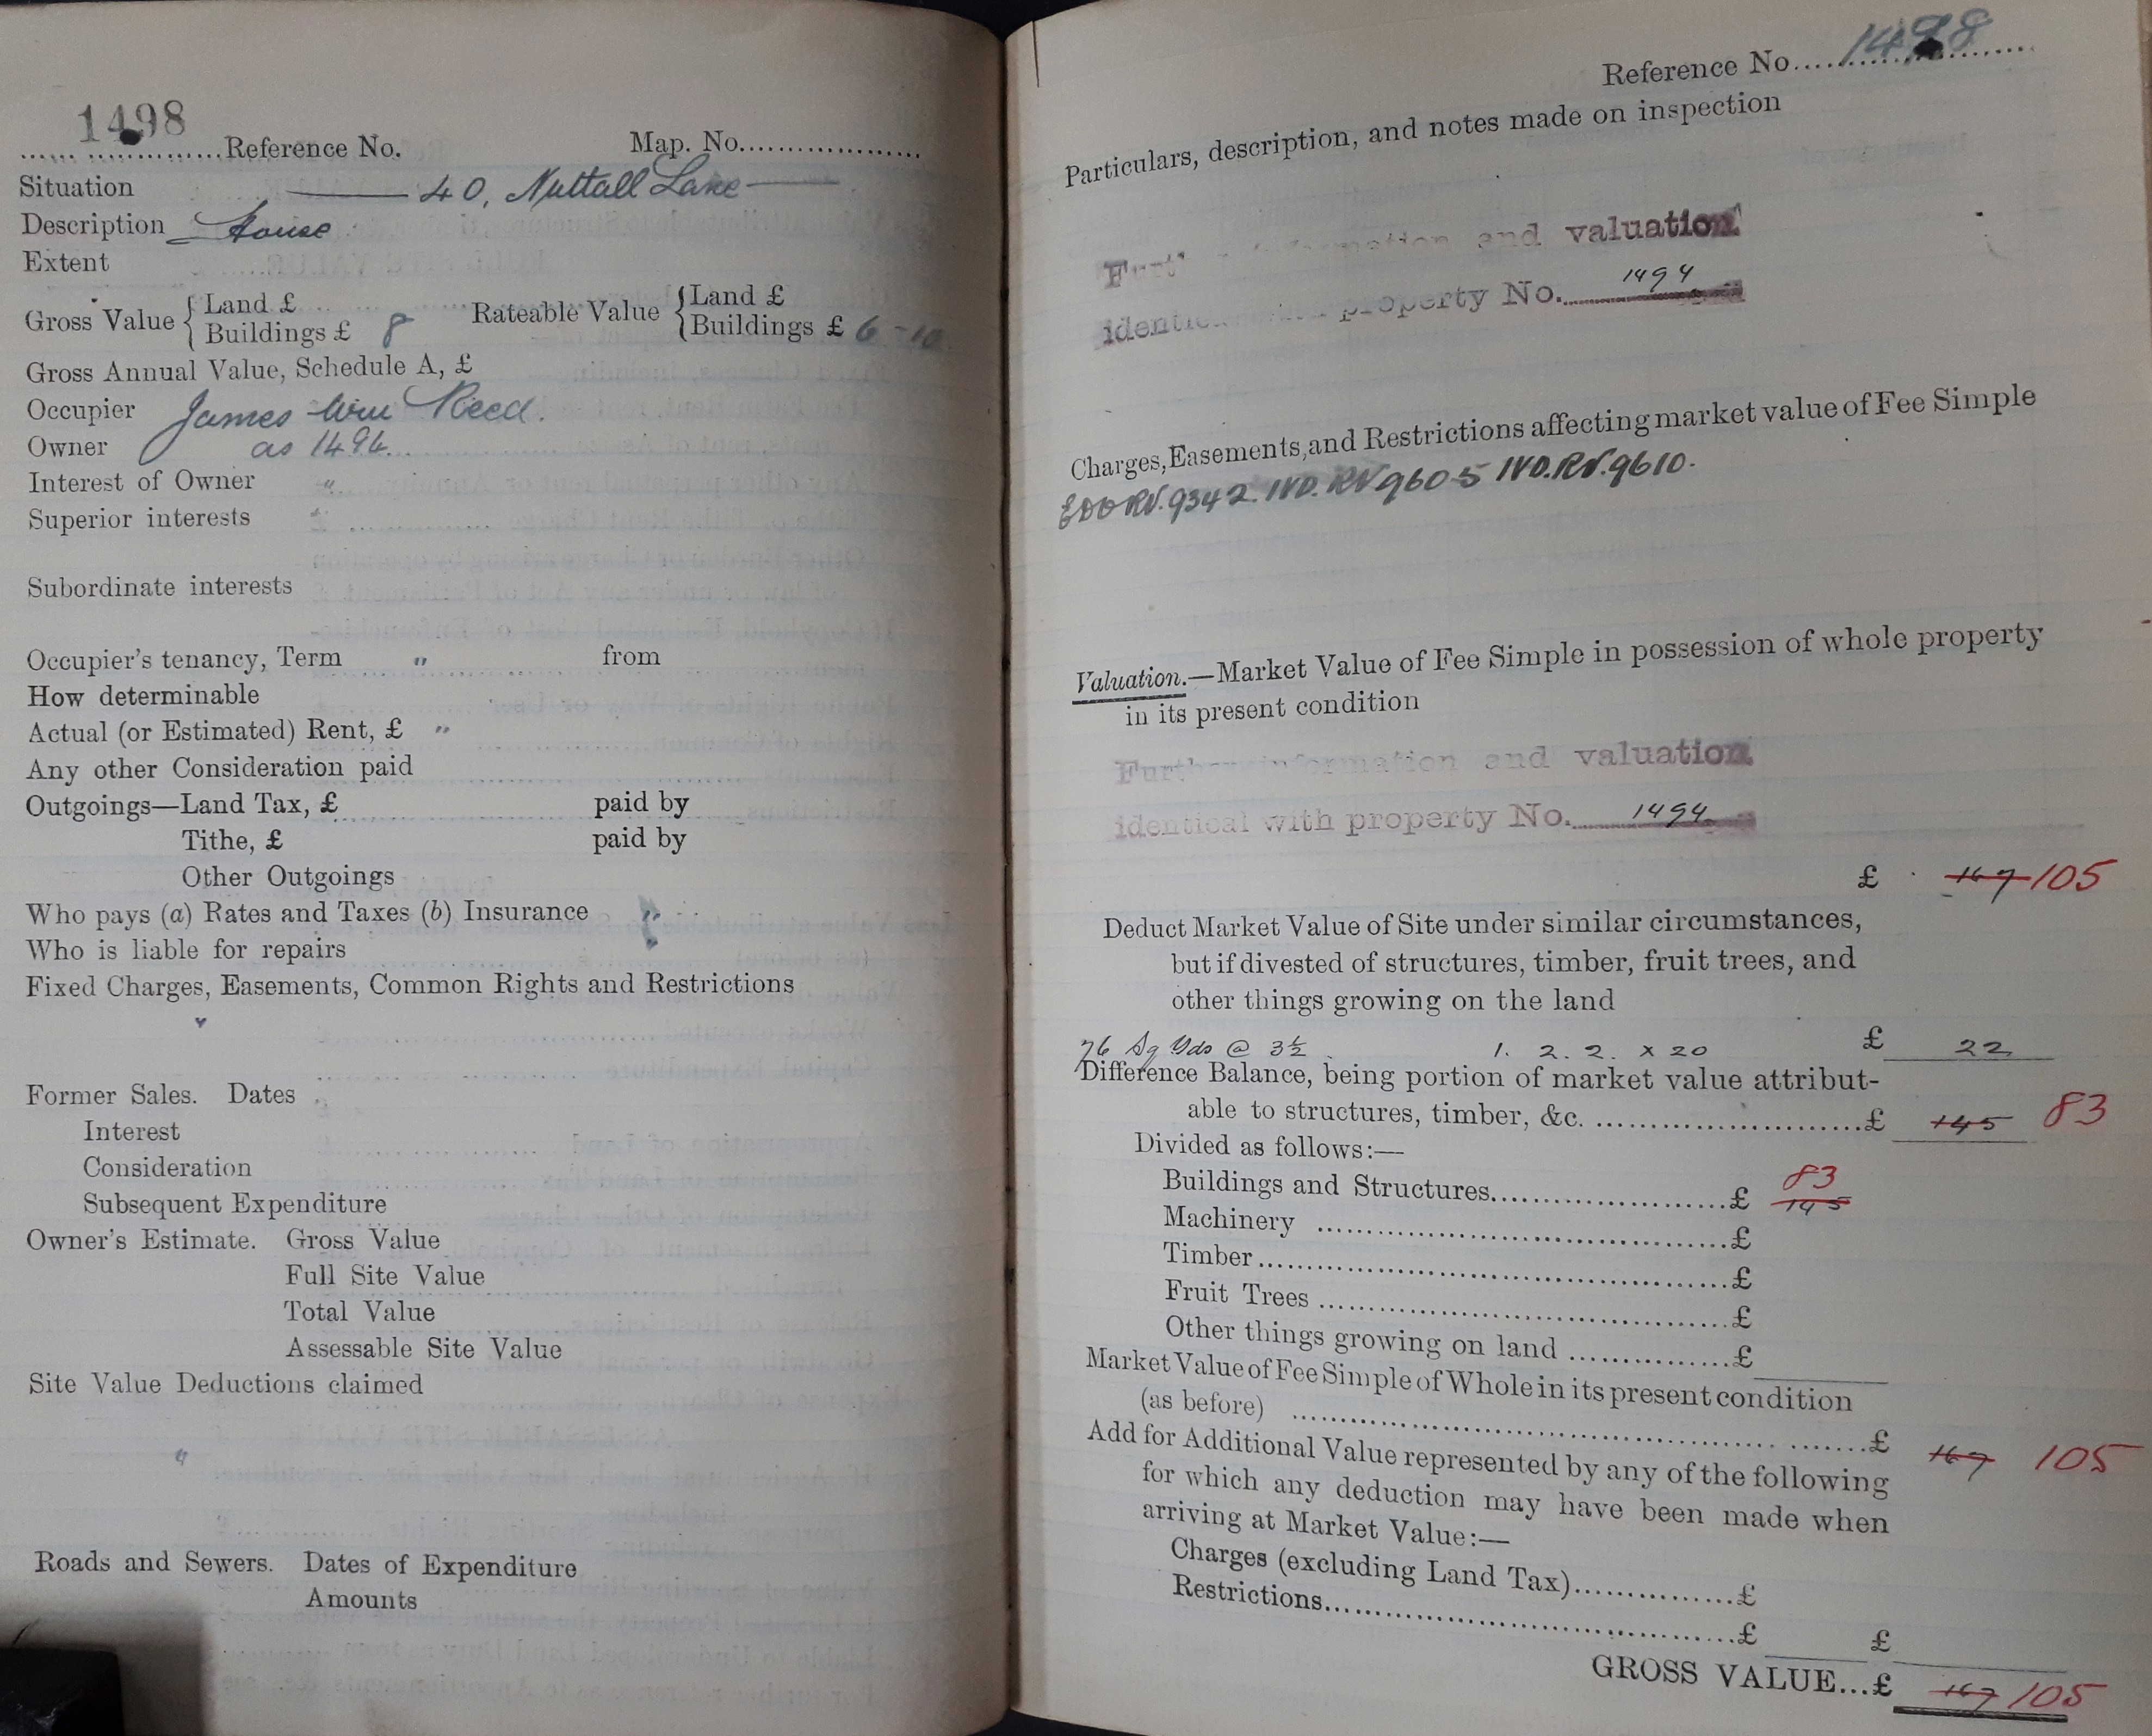 1498
Reference No. Map. No.
Situation 40, Nuttall Lane
Description House
Extent
Gross Value { Land £ Rateable Value { Land £
Buildings £ 8 Buildings £ 6-10
Gross Annual Value, Schedule A, £
Occupier James Wm Reed.
Owner as 1494
Interest of Owner "
Superior interests
Subordinate interests
Occupier's tenancy, Term " from
How determinable
Actual (or Estimated) Rent, £ "
Any other Consideration paid
Outgoings—Land Tax, £ paid by
Tithe, £ paid by
Other Outgoings
Who pays (a) Rates and Taxes (b) Insurance
Who is liable for repairs
Fixed Charges, Easements, Common Rights and Restrictions
"
Former Sales. Dates
Interest
Consideration
Subsequent Expenditure
Owner's Estimate. Gross Value
Full Site Value
Total Value
Assessable Site Value
Site Value Deductions claimed
"
Roads and Sewers. Dates of Expenditure
Amounts
Reference No. 1498
Particulars, description, and notes made on inspection
Further information and valuation
identical with property No. 1494
Charges, Easements, and Restrictions affecting market value of Fee Simple
RV. 9342. IVD. RV 9605 IVD. RV. 9610.
Valuation.—Market Value of Fee Simple in possession of whole property
in its present condition
Further information and valuation
identical with property No. 1494
£ 167 105
Deduct Market Value of Site under similar circumstances,
but if divested of structures, timber, fruit trees, and
other things growing on the land
76 Sq Yds @ 3½ 1. 2. 2. x 20 £ 22
Difference Balance, being portion of market value attribut-
able to structures, timber, &c. £ 145 83
Divided as follows:—
83
Buildings and Structures £ 145
Machinery £
Timber £
Fruit Trees £
Other things growing on land £
Market Value of Fee Simple of Whole in its present condition
(as before) £ 167 105
Add for Additional Value represented by any of the following
for which any deduction may have been made when
arriving at Market Value:—
Charges (excluding Land Tax) £
Restrictions £ £
GROSS VALUE... £ 167 105